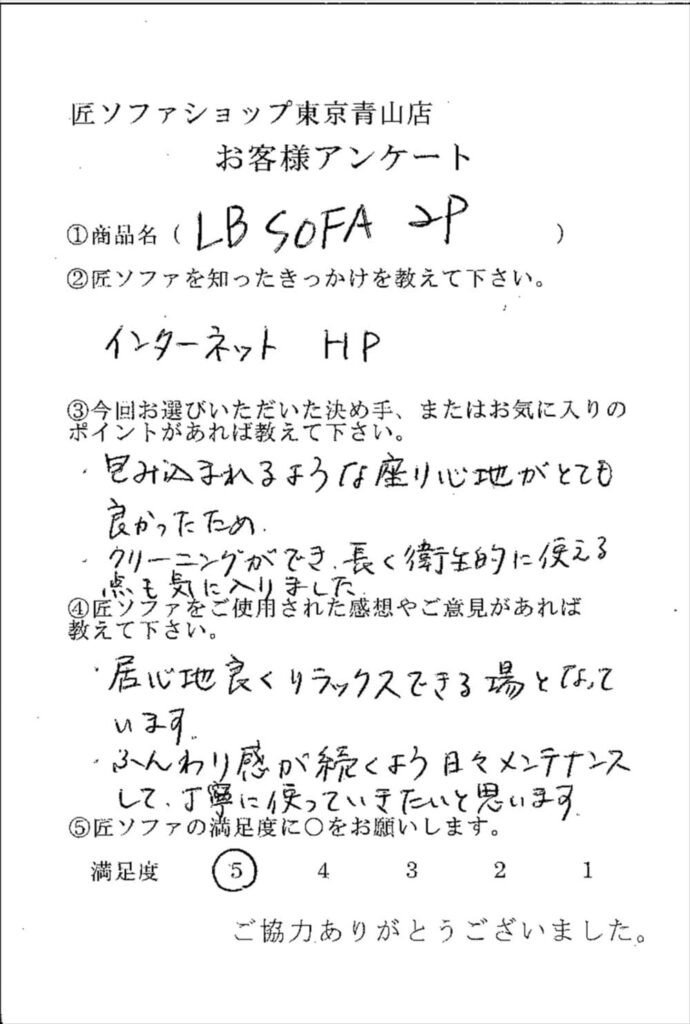 匠ソファショップ東京青山店
お客様アンケート
①商品名（ LB SOFA 2P ）
②匠ソファを知ったきっかけを教えて下さい。
インターネット HP
③今回お選びいただいた決め手、またはお気に入りの
ポイントがあれば教えて下さい。
・包み込まれるような座り心地がとても
良かったため.
・クリーニングができ、長く衛生的に使える
点も気に入りました.
④匠ソファをご使用された感想やご意見があれば
教えて下さい。
・居心地良くリラックスできる場となって
います.
・ふんわり感が続くよう日々メンテナンス
して、丁寧に使っていきたいと思います.
⑤匠ソファの満足度に○をお願いします。
満足度 5 4 3 2 1
ご協力ありがとうございました。